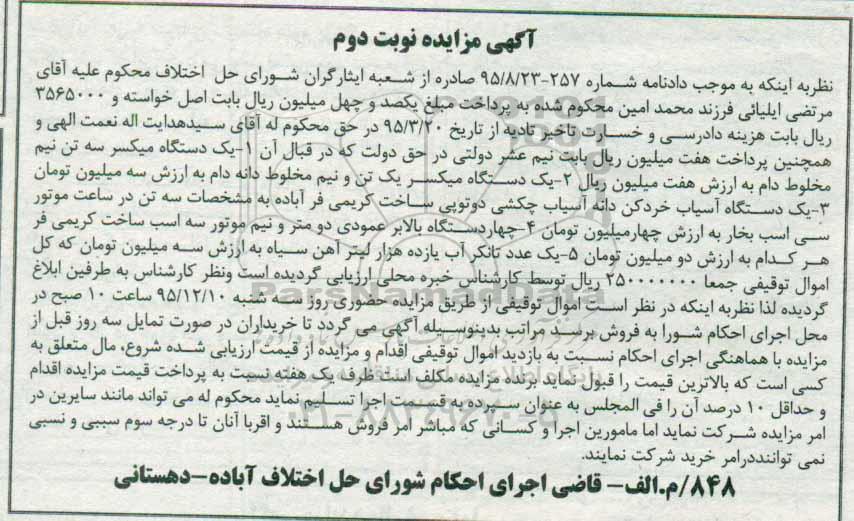 آگهی مزایده نوبت دوم
نظربه اینکه به موجب دادنامه شماره ۲۵۷-۹۵/۸/۲۳ صادره از شعبه ایثارگران شورای حل اختلاف محکوم علیه آقای
مرتضی ایلیائی فرزند محمد امین محکوم شده به پرداخت مبلغ یکصد و چهل میلیون ریال بابت اصل خواسته و ۳۵۶۵۰۰۰
ریال بابت هزینه دادرسی و خسارت تاخیر تادیه از تاریخ ۹۵/۳/۲۰ در حق محکوم له آقای سیدهدایت اله نعمت الهی و
همچنین پرداخت هفت میلیون ریال بابت نیم عشر دولتی در حق دولت که در قبال آن ۱-یک دستگاه میکسر سه تن نیم
مخلوط دام به ارزش هفت میلیون ریال ۲-یک دستگاه میکسر یک تن و نیم مخلوط دانه دام به ارزش سه میلیون تومان
۳-یک دستگاه آسیاب خردکن دانه آسیاب چکشی دوتوپی ساخت کریمی فر آباده به مشخصات سه تن در ساعت موتور
سی اسب بخار به ارزش چهارمیلیون تومان ۴-چهاردستگاه بالابر عمودی دو متر و نیم موتور سه اسب ساخت کریمی فر
هر کدام به ارزش دو میلیون تومان ۵-یک عدد تانکر آب یازده هزار لیتر آهن سیاه به ارزش سه میلیون تومان که کل
اموال توقیفی جمعا ۲۵۰۰۰۰۰۰۰ ریال توسط کارشناس خبره محلی ارزیابی گردیده است ونظر کارشناس به طرفین ابلاغ
گردیده لذا نظربه اینکه در نظر است اموال توقیفی از طریق مزایده حضوری روز سه شنبه ۹۵/۱۲/۱۰ ساعت ۱۰ صبح در
محل اجرای احکام شورا به فروش برسد مراتب بدینوسیله آگهی می گردد تا خریداران در صورت تمایل سه روز قبل از
مزایده با هماهنگی اجرای احکام نسبت به بازدید اموال توقیفی اقدام و مزایده از قیمت ارزیابی شده شروع، مال متعلق به
کسی است که بالاترین قیمت را قبول نماید برنده مزایده مکلف است ظرف یک هفته نسبت به پرداخت قیمت مزایده اقدام
و حداقل ۱۰ درصد آن را فی المجلس به عنوان سپرده به قسمت اجرا تسلیم نماید محکوم له می تواند مانند سایرین در
امر مزایده شرکت نماید اما مامورین اجرا و کسانی که مباشر امر فروش هستند و اقربا آنان تا درجه سوم سببی و نسبی
نمی تواننددرامر خرید شرکت نمایند.
۸۴۸/م.الف- قاضی اجرای احکام شورای حل اختلاف آباده-دهستانی
ParsNamadData